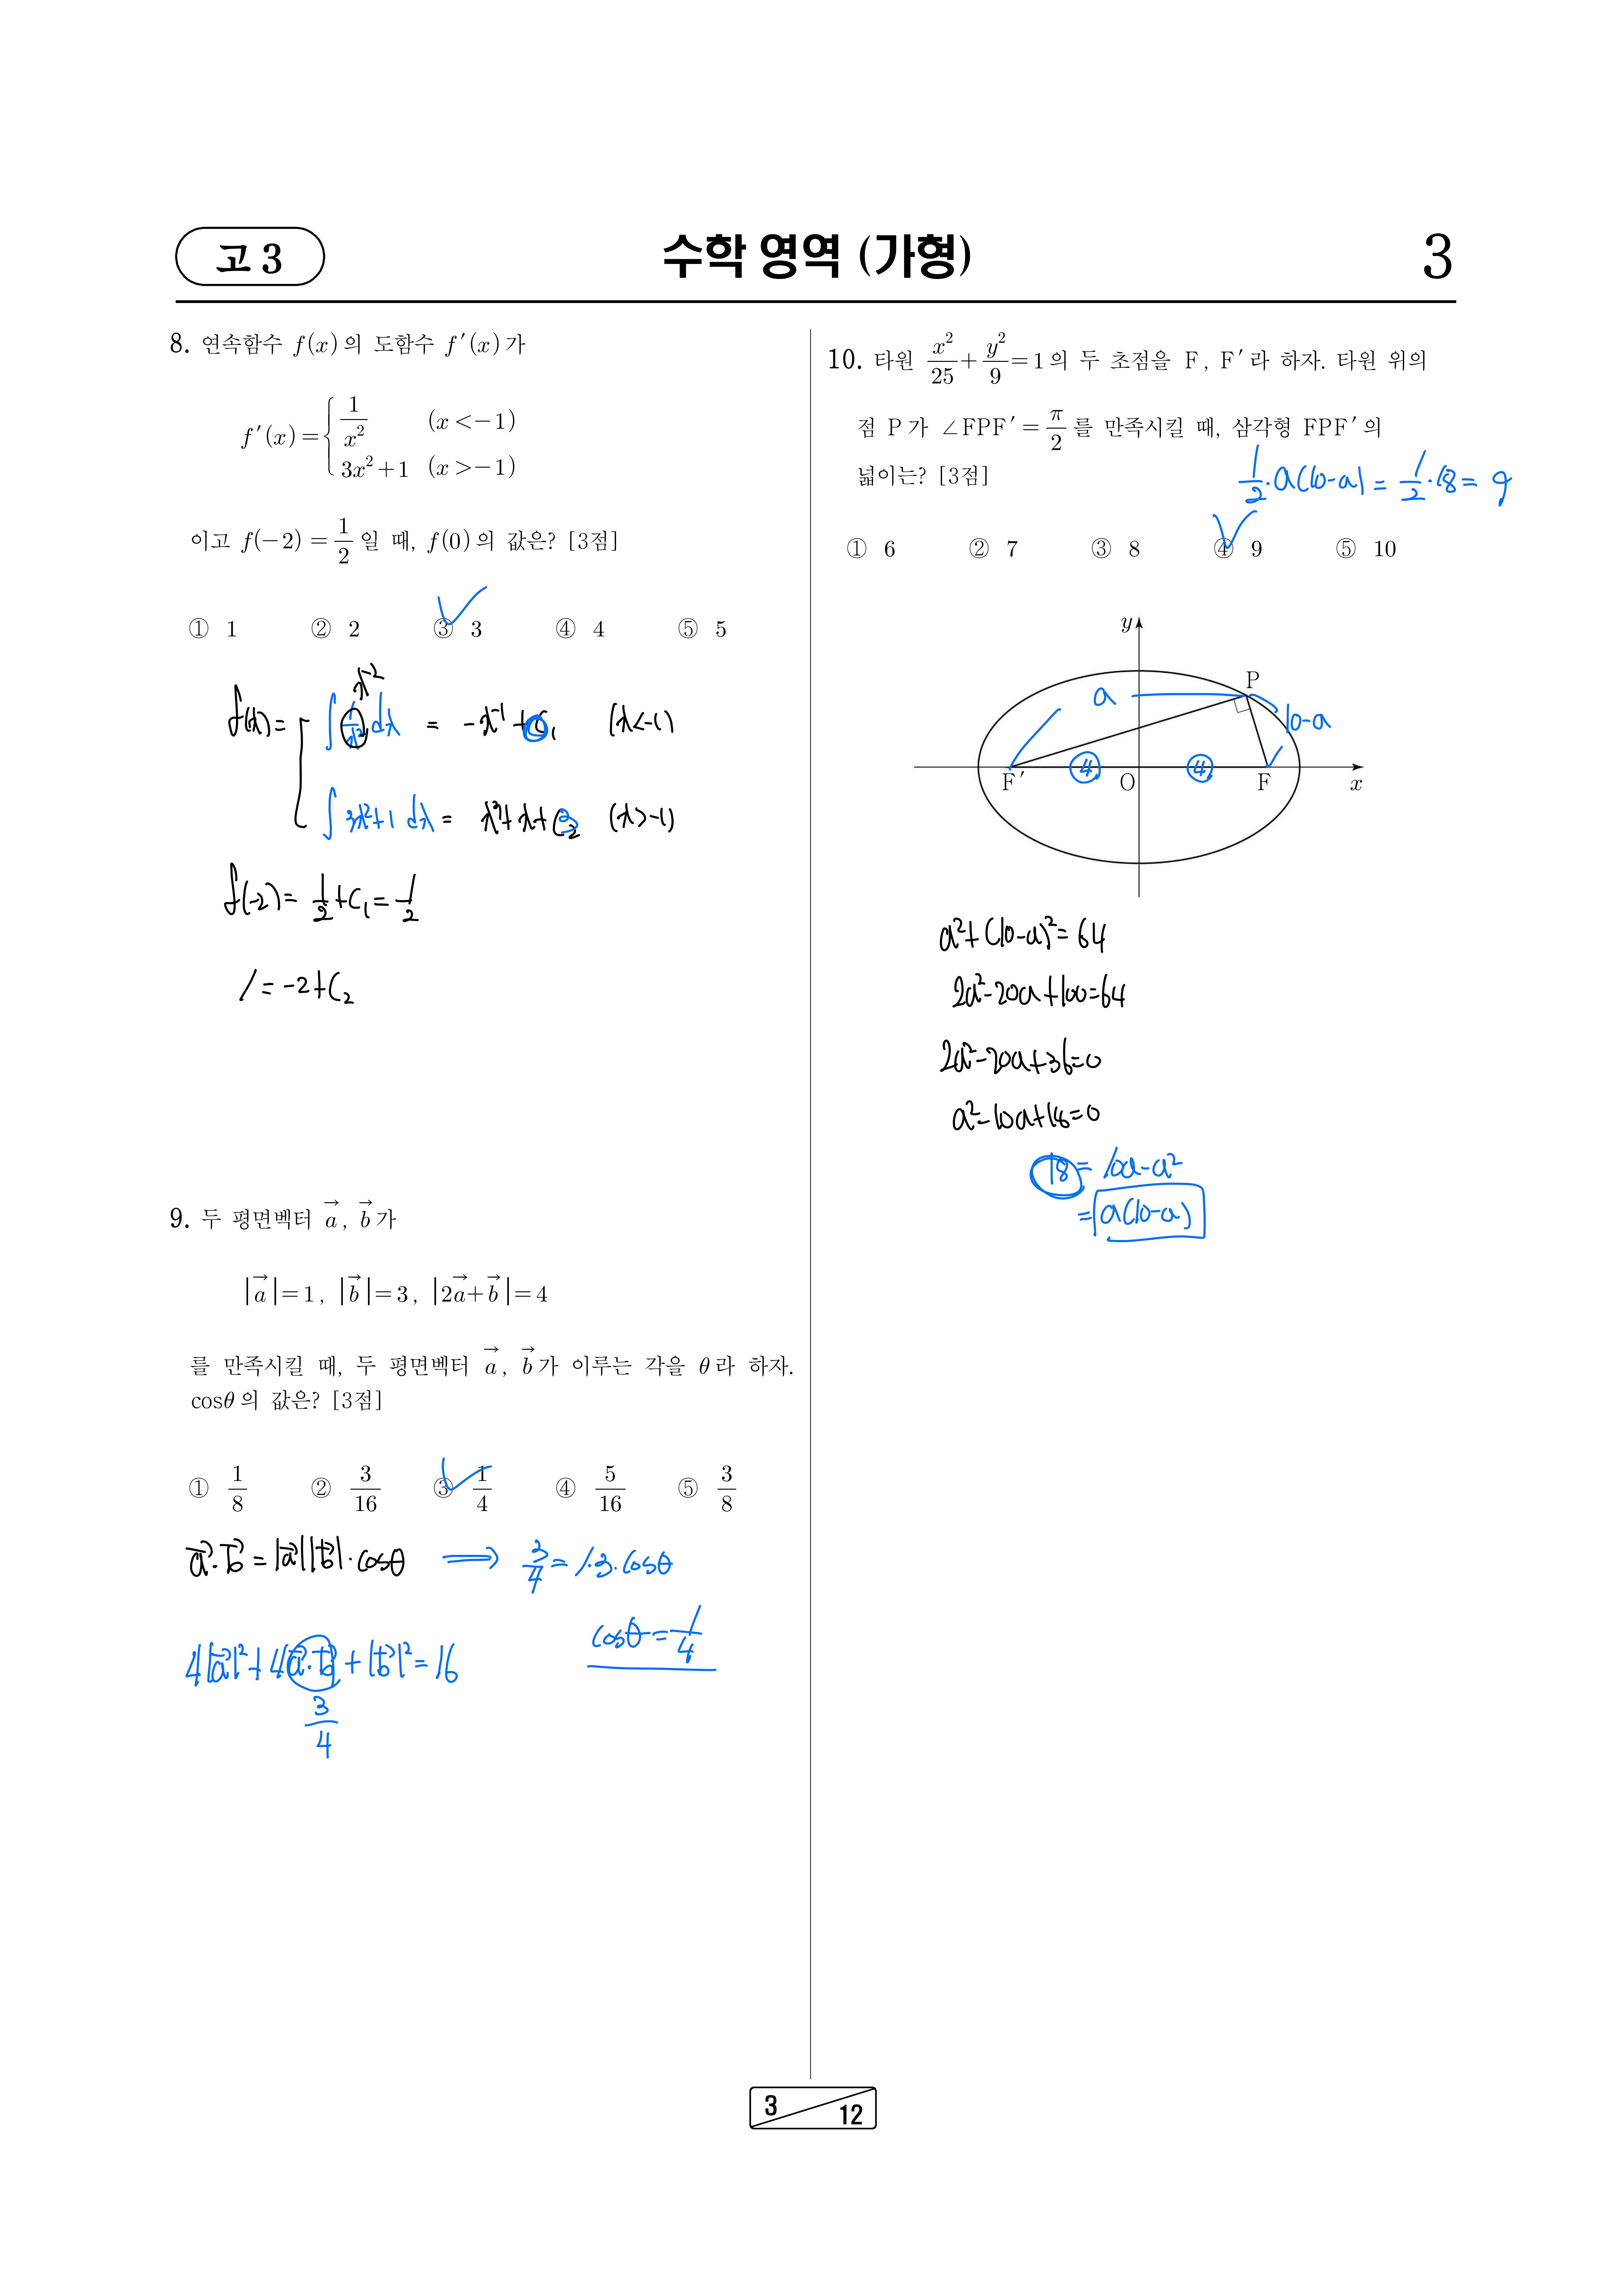 고 3
수학 영역 (가형)
3
8. 연속함수 f(x)의 도함수 f′(x)가
f′(x)={ 1/x² (x<−1)
3x²+1 (x>−1)
이고 f(−2)=1/2 일 때, f(0)의 값은? [3점]
① 1 ② 2 ③ 3 ④ 4 ⑤ 5
x⁻²
f(x)= ∫ 1/x² dx = −x⁻¹+C₁ (x<−1)
∫ 3x²+1 dx = x³+x+C₂ (x>−1)
f(−2)= 1/2+C₁= 1/2
1=−2+C₂
9. 두 평면벡터 a⃗, b⃗가
|a⃗|=1, |b⃗|=3, |2a⃗+b⃗|=4
를 만족시킬 때, 두 평면벡터 a⃗, b⃗가 이루는 각을 θ라 하자.
cosθ의 값은? [3점]
① 1/8 ② 3/16 ③ 1/4 ④ 5/16 ⑤ 3/8
a⃗·b⃗=|a⃗||b⃗|·cosθ ⟹ 3/4=1·3·cosθ
cosθ=1/4
4|a⃗|²+4(a⃗·b⃗)+|b⃗|²=16
3/4
10. 타원 x²/25+y²/9=1의 두 초점을 F, F′라 하자. 타원 위의
점 P가 ∠FPF′=π/2를 만족시킬 때, 삼각형 FPF′의
넓이는? [3점]
1/2·a(10−a)=1/2·18=9
① 6 ② 7 ③ 8 ④ 9 ⑤ 10
y
P
a
10−a
4
4
F′
O
F
x
a²+(10−a)²=64
2a²−20a+100=64
2a²−20a+36=0
a²−10a+18=0
18=10a−a²
=a(10−a)
3
12